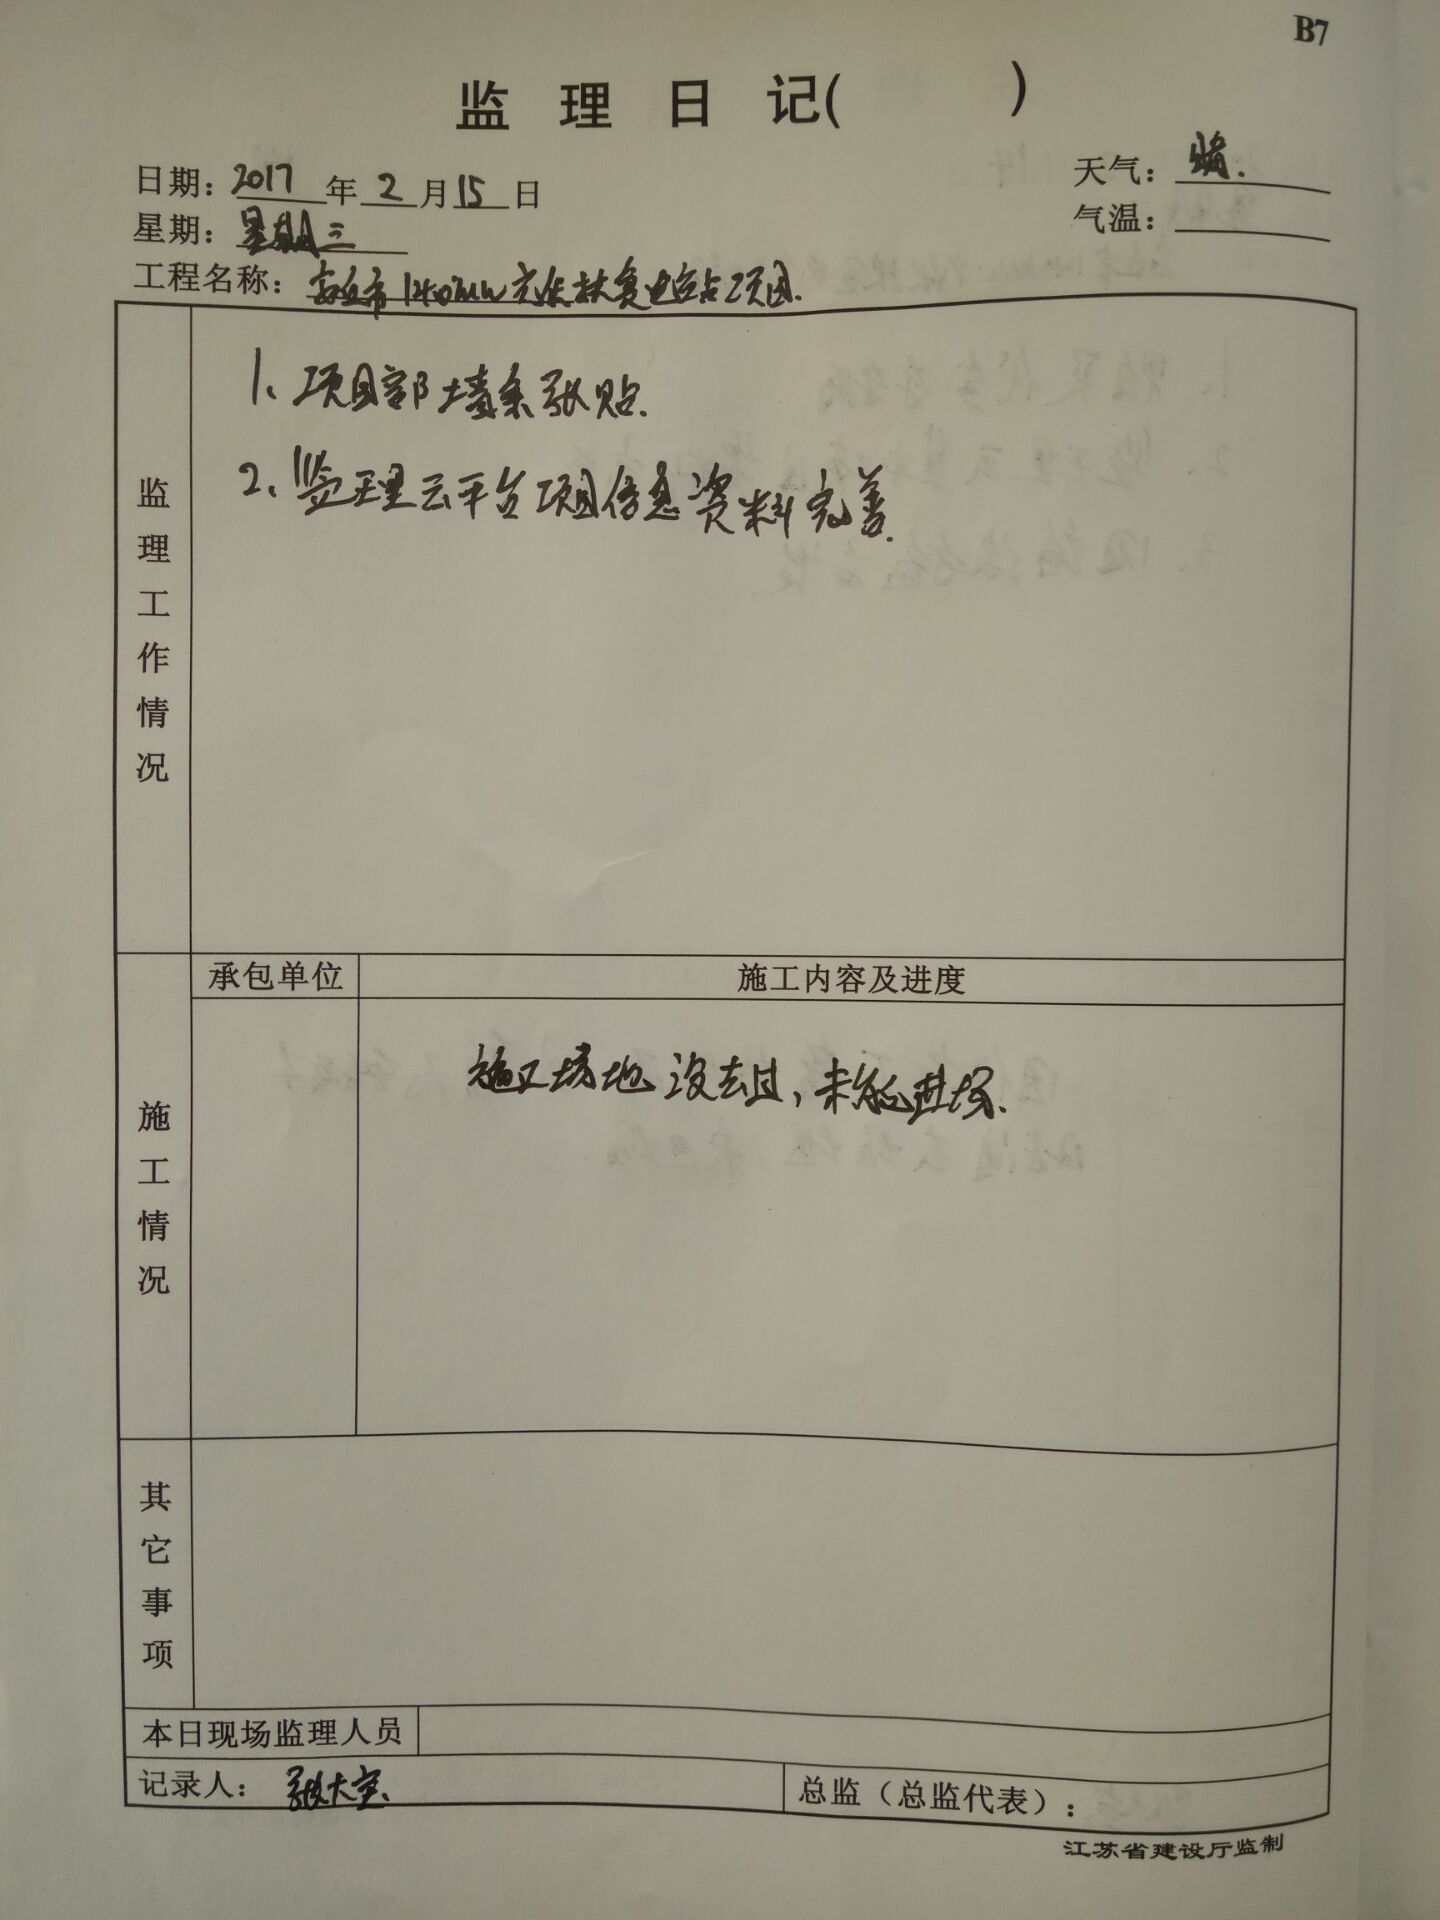 B7
监理日记( )
日期：2017年2月15日
天气：晴.
星期：星期三
气温：
工程名称：安丘市140MW光伏扶贫电站项目.
监理工作情况
1、项目部墙条张贴.
2、监理云平台项目信息资料完善.
承包单位 施工内容及进度
施工情况
施工场地没去过，未能进场.
其它事项
本日现场监理人员
记录人：张大宝
总监（总监代表）：
江苏省建设厅监制